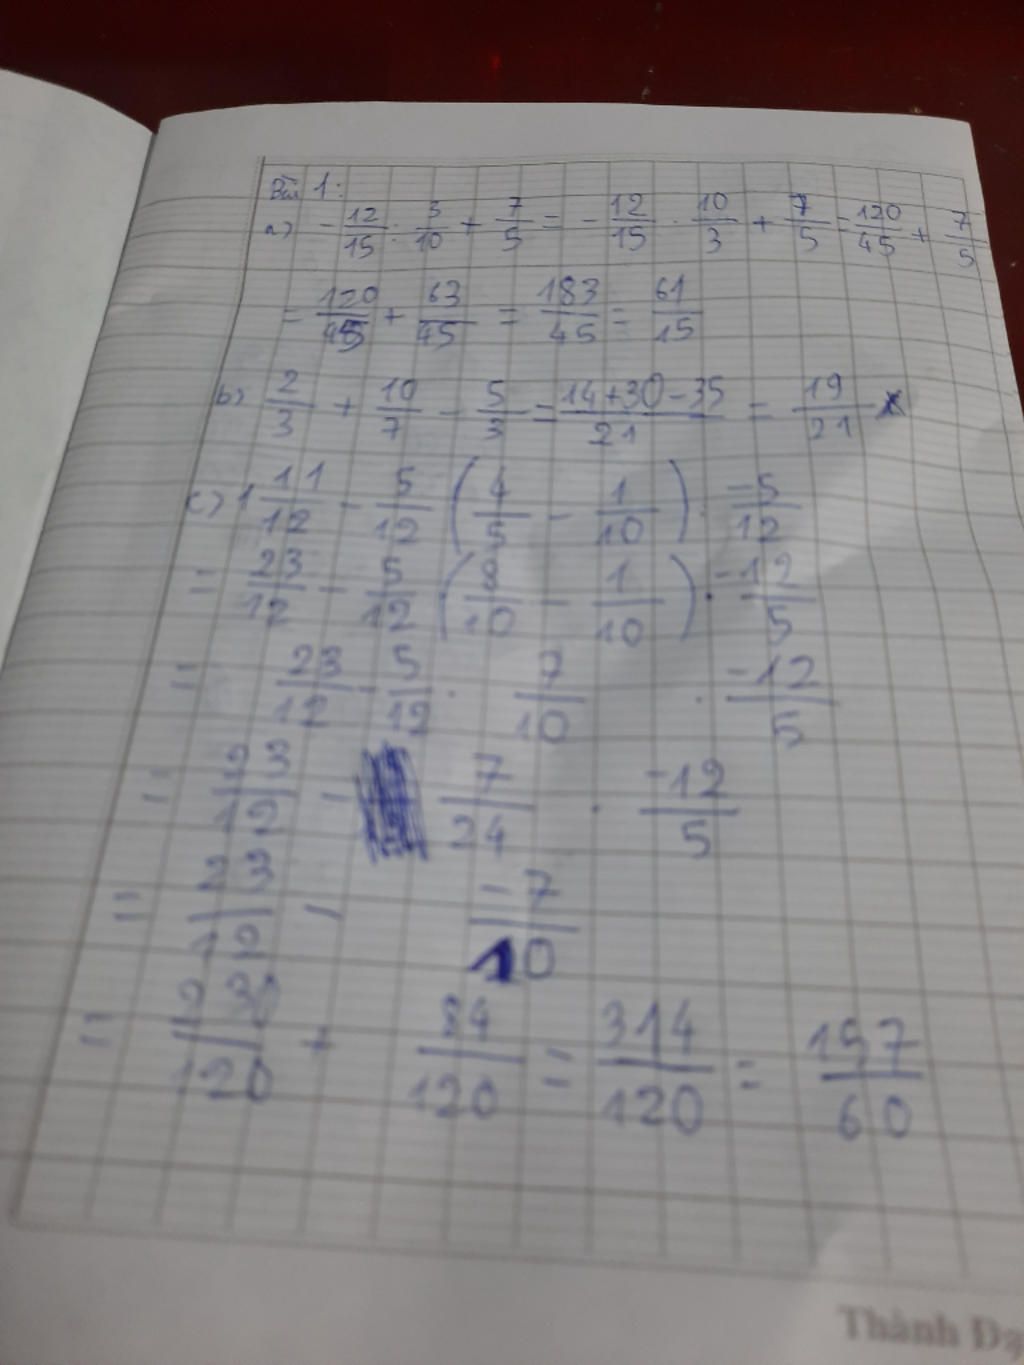 Bài 1:
a) - 12/15 : 3/10 + 7/5 = - 12/15 · 10/3 + 7/5 = 120/45 + 7/5
= 120/45 + 63/45 = 183/45 = 61/15
b) 2/3 + 10/7 - 5/3 = 14+30-35/21 = 19/21
c) 1 11/12 - 5/12 (4/5 - 1/10) · -5/12
= 23/12 - 5/12 (8/10 - 1/10) · -12/5
= 23/12 - 5/12 · 7/10 · -12/5
= 23/12 - 7/24 · -12/5
= 23/12 - -7/10
= 230/120 + 84/120 = 314/120 = 157/60
Thành